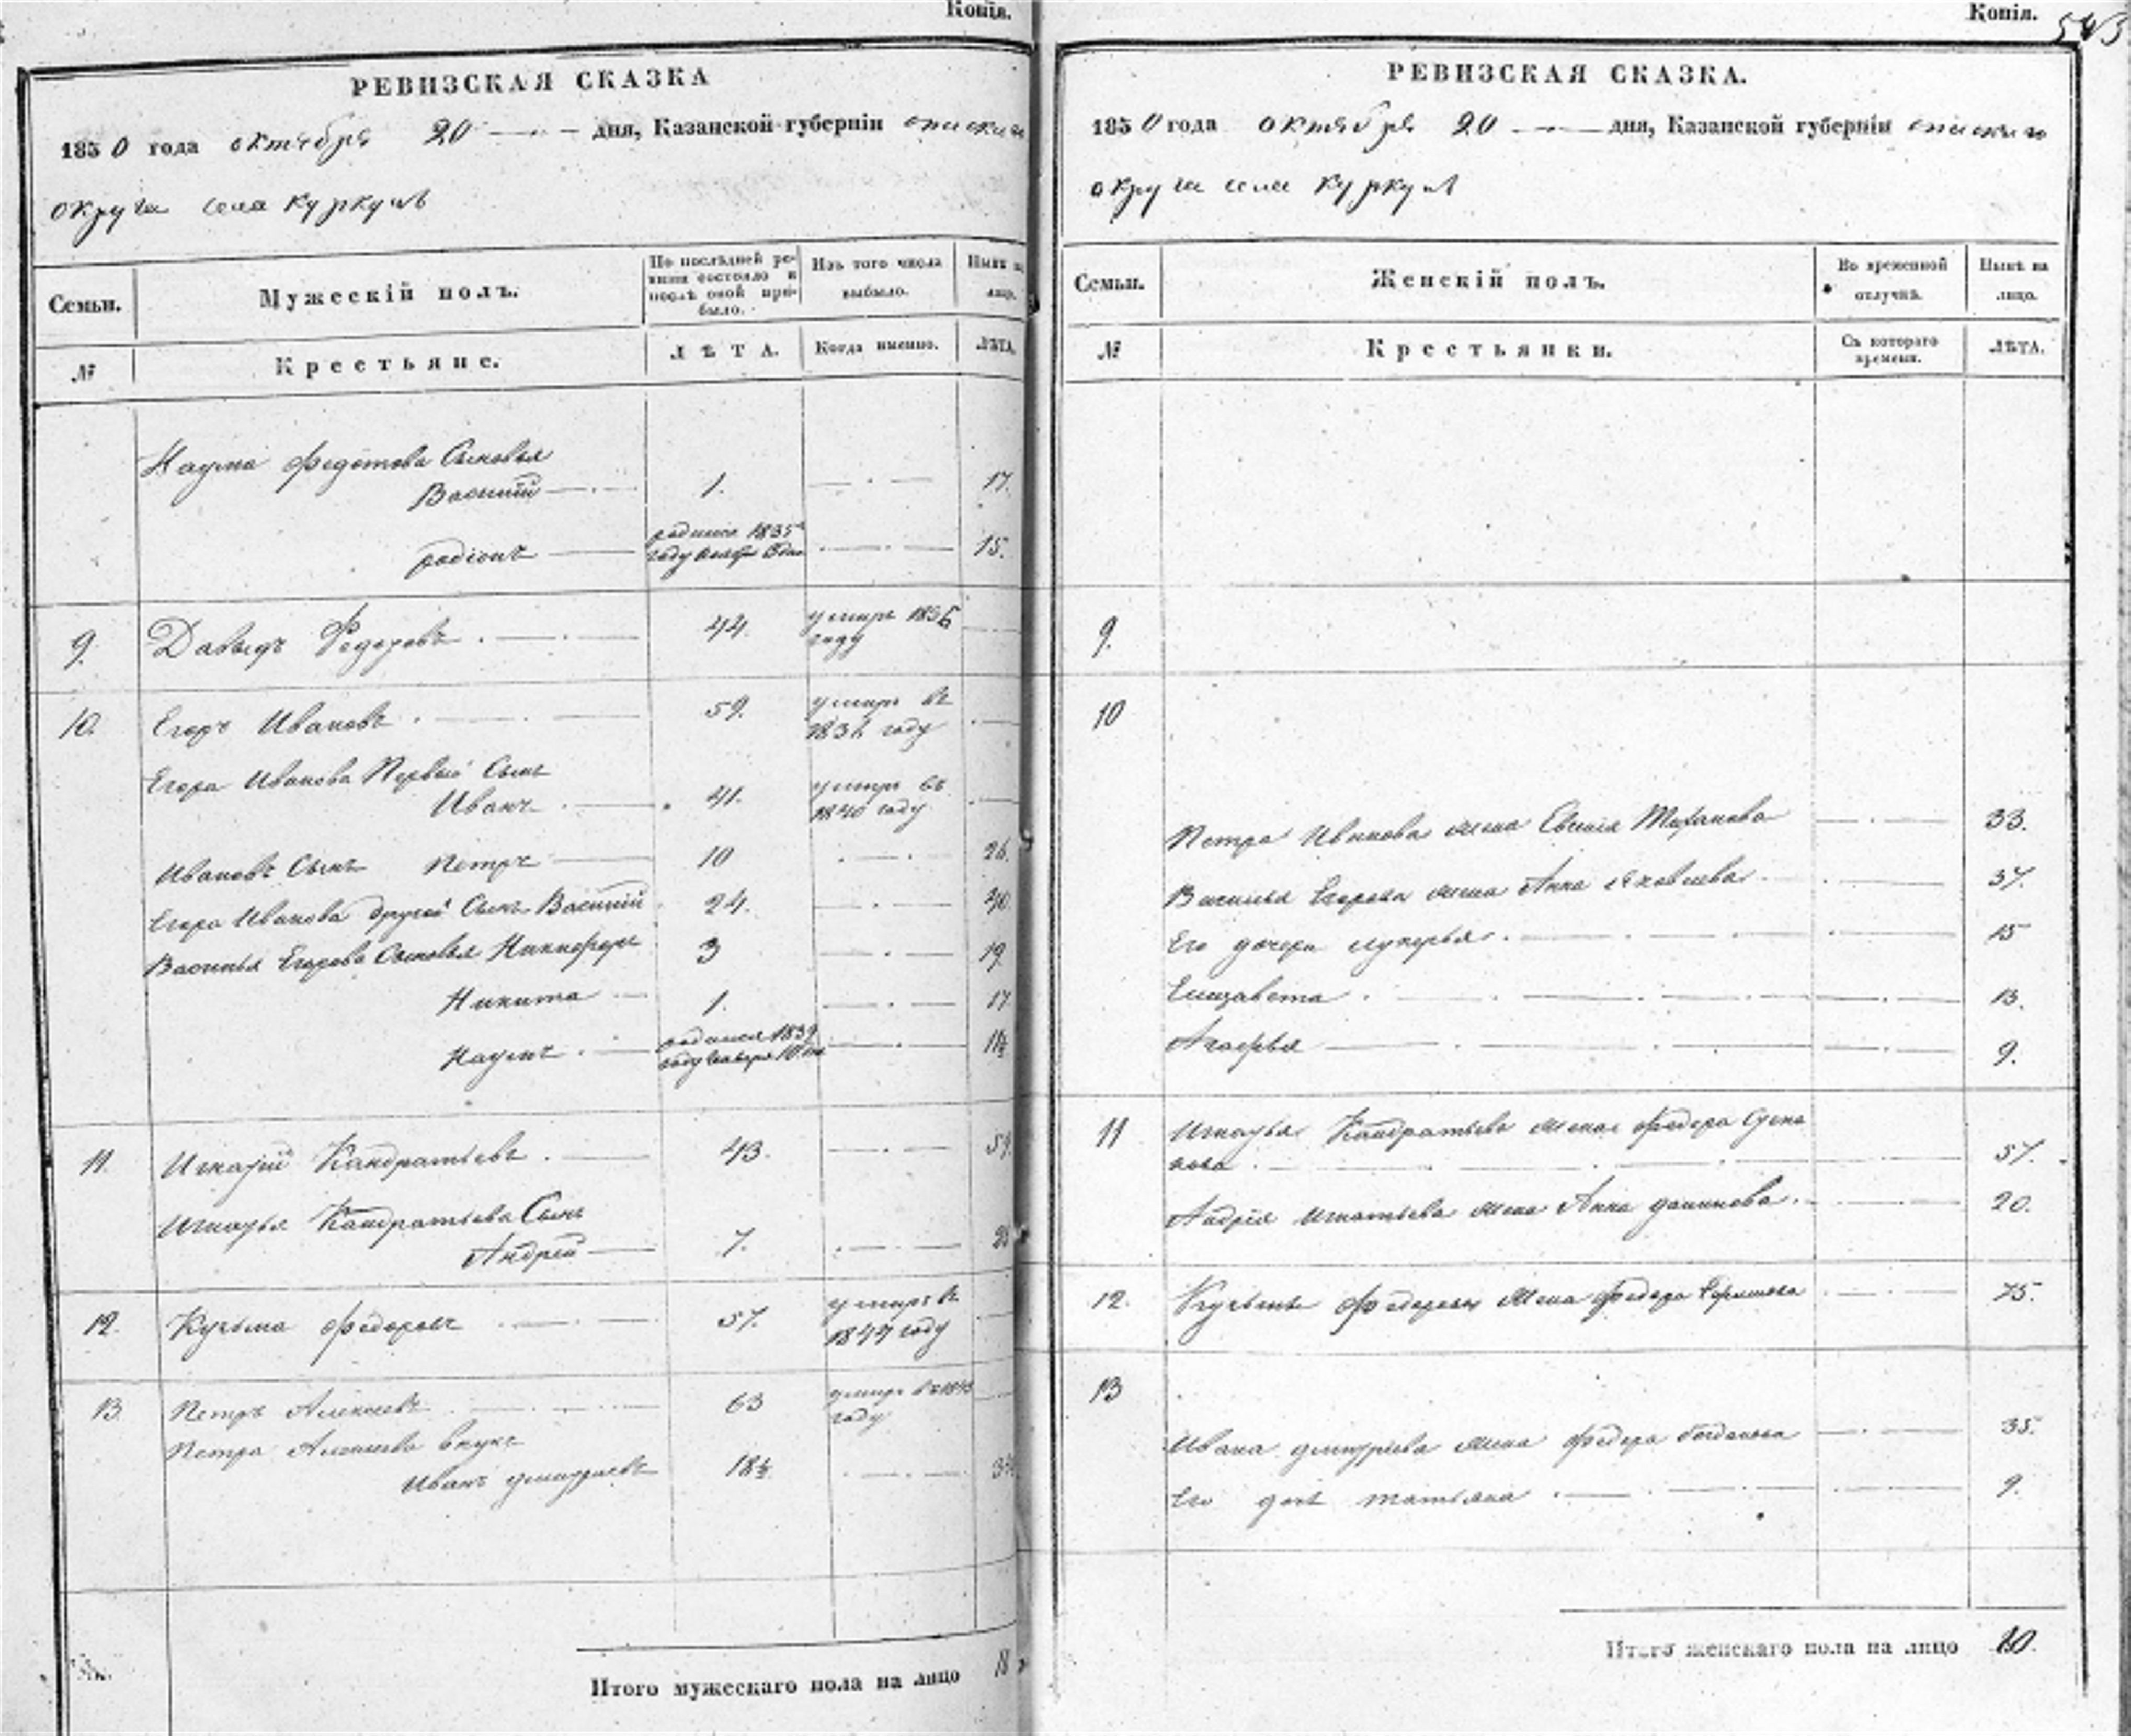 Копія.
РЕВИЗСКАЯ СКАЗКА
1850 года октября 20 дня, Казанской губерніи спаскаго
округа села куркулъ
Семьи.
Мужескій полъ.
По послѣдней ре-
визіи состояло и
послѣ оной при-
было.
Изъ того числа
выбыло.
Нынѣ на
лицо.
№
Крестьяне.
ЛѢТА.
Когда именно.
ЛѢТА.
Наума федотова Сыновья
Василій 1. 17.
родіонъ родился 1835
году 15.
9. Давыдъ Федоровъ 44. умиръ 1836
году
10. Егоръ Ивановъ 59. умиръ въ
году
Егора Иванова Первый Сынъ
Иванъ 41. умиръ въ
1840 году
Ивановъ Сынъ Петръ 10 26.
Егора Иванова другой Сынъ Василій 24. 40
Василья Егорова Сыновья Никифоръ 3 19.
Никита 1. 17
Наумъ родился 1839
году 11
11. Игнатій Кандратьевъ 43. 59.
Игнатья Кандратьева Сынъ
Андрей 7.
12. Кузьма федоровъ 57. умиръ въ
1844 году
13 Петръ Алексеевъ 63 умиръ въ
году
Петра Алексеева внукъ
Иванъ дмитриевъ 18½
Итого мужескаго пола на лицо
Копія.
РЕВИЗСКАЯ СКАЗКА.
1850 года октября 20 дня, Казанской губерніи спаскаго
округа села куркулъ
Семьи.
Женскій полъ.
Во временной
отлучкѣ.
Нынѣ на
лицо.
№
Крестьянки.
Съ котораго
времени.
ЛѢТА.
9.
10
Петра Иванова жена 33.
Василья Егорова жена Анна Яковлева 37.
Его дочери лукерья 15
Елизавета 13.
Агафья 9.
11 Игнатья Кандратьева жена федора
57.
Андрея игнатьева жена Анна данилова 20.
12. Кузьмы федорова жена федора Ефимова 75.
13
Ивана дмитриева жена федора богданова 35.
Его дочь татьяна 9.
Итого женскаго пола на лицо 10.